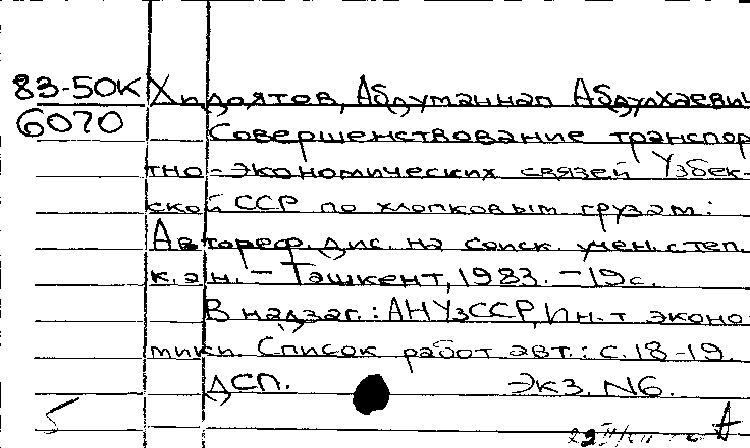 83-50К Хидоятов, Абдуманнап Абдулхаевич
6070 Совершенствование транспор-
тно-экономических связей Узбек-
ской ССР по хлопковым грузам:
Автореф. дис. на соиск. учен. степ.
к.э.н. - Ташкент, 1983. - 19 с.
В надзаг.: АН УзССР, Ин-т эконо-
мики. Список работ авт.: с. 18-19.
ДСП. Экз. N6.
5